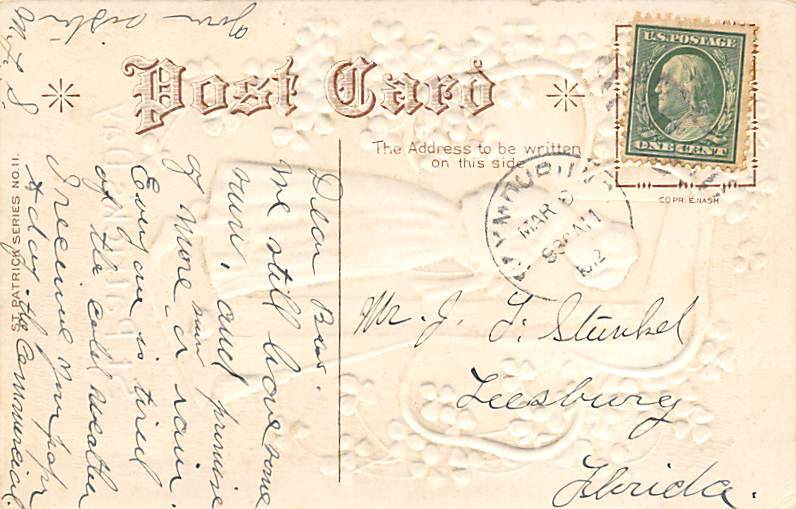 Post Card
The Address to be written
on this side
U.S. POSTAGE
ONE CENT
COPR. E. NASH
MAR
830 AM
1912
Mr. J. F. Stunkel
Leesburg
Florida.
Dear Bro.
We still have some
run, and promise
of more
Everyone is tired
of the cold weather
I receive your papr
today the Commercial.
your sister
M. L. S.
ST. PATRICK SERIES NO. 11.